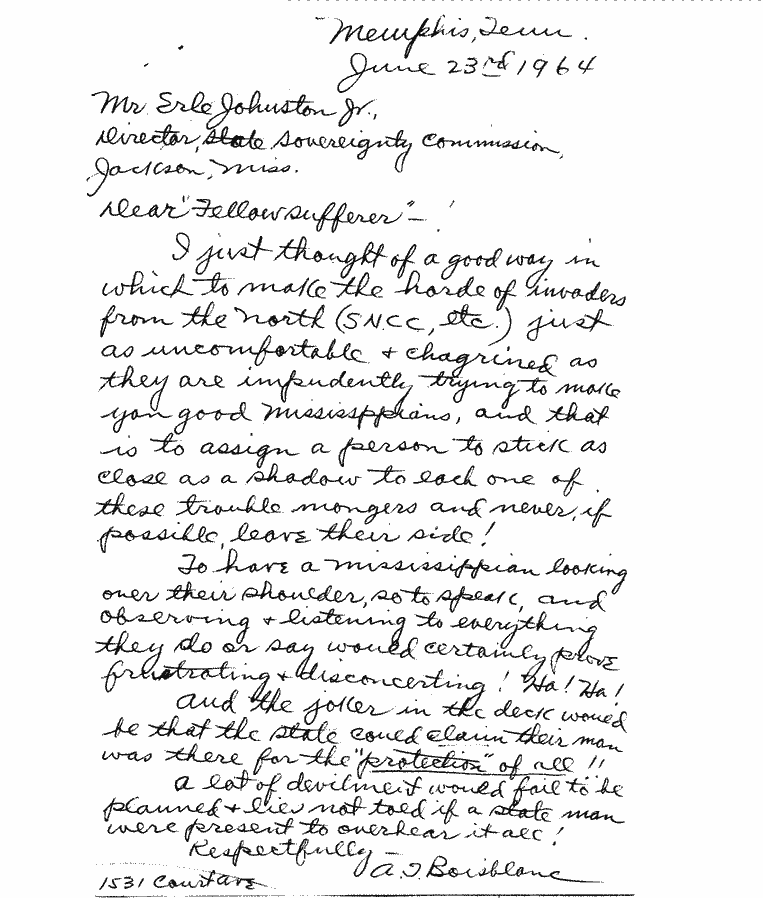 Memphis, Tenn.
June 23rd 1964
Mr. Erle Johnston Jr.,
Director, State Sovereignty Commission,
Jackson, Miss.
Dear "Fellow sufferer" — !
I just thought of a good way in
which to make the horde of invaders
from the north (SNCC, etc.) just
as uncomfortable + chagrined as
they are impudently trying to make
you good Mississippians, and that
is to assign a person to stick as
close as a shadow to each one of
these trouble mongers and never, if
possible, leave their side!
To have a Mississippian looking
over their shoulder, so to speak, and
observing + listening to everything
they do or say would certainly prove
frustrating + disconcerting! Ha! Ha!
And the joker in the deck would
be that the state could claim their man
was there for the "protection" of all!!
A lot of devilment would fail to be
planned + lies not told if a state man
were present to overhear it all!
Respectfully —
A. I. Boisblanc
1531 Court Ave